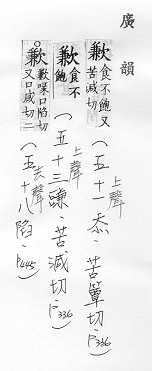 廣韻
歉 食不飽又
苦減切
上聲
（五十一忝．苦簟切．P336）
歉 食不
飽
上聲
（五十三豏．苦減切．P336）
○歉 歉喙口陷切
又口咸切二
去聲
（五十八陷．P445）